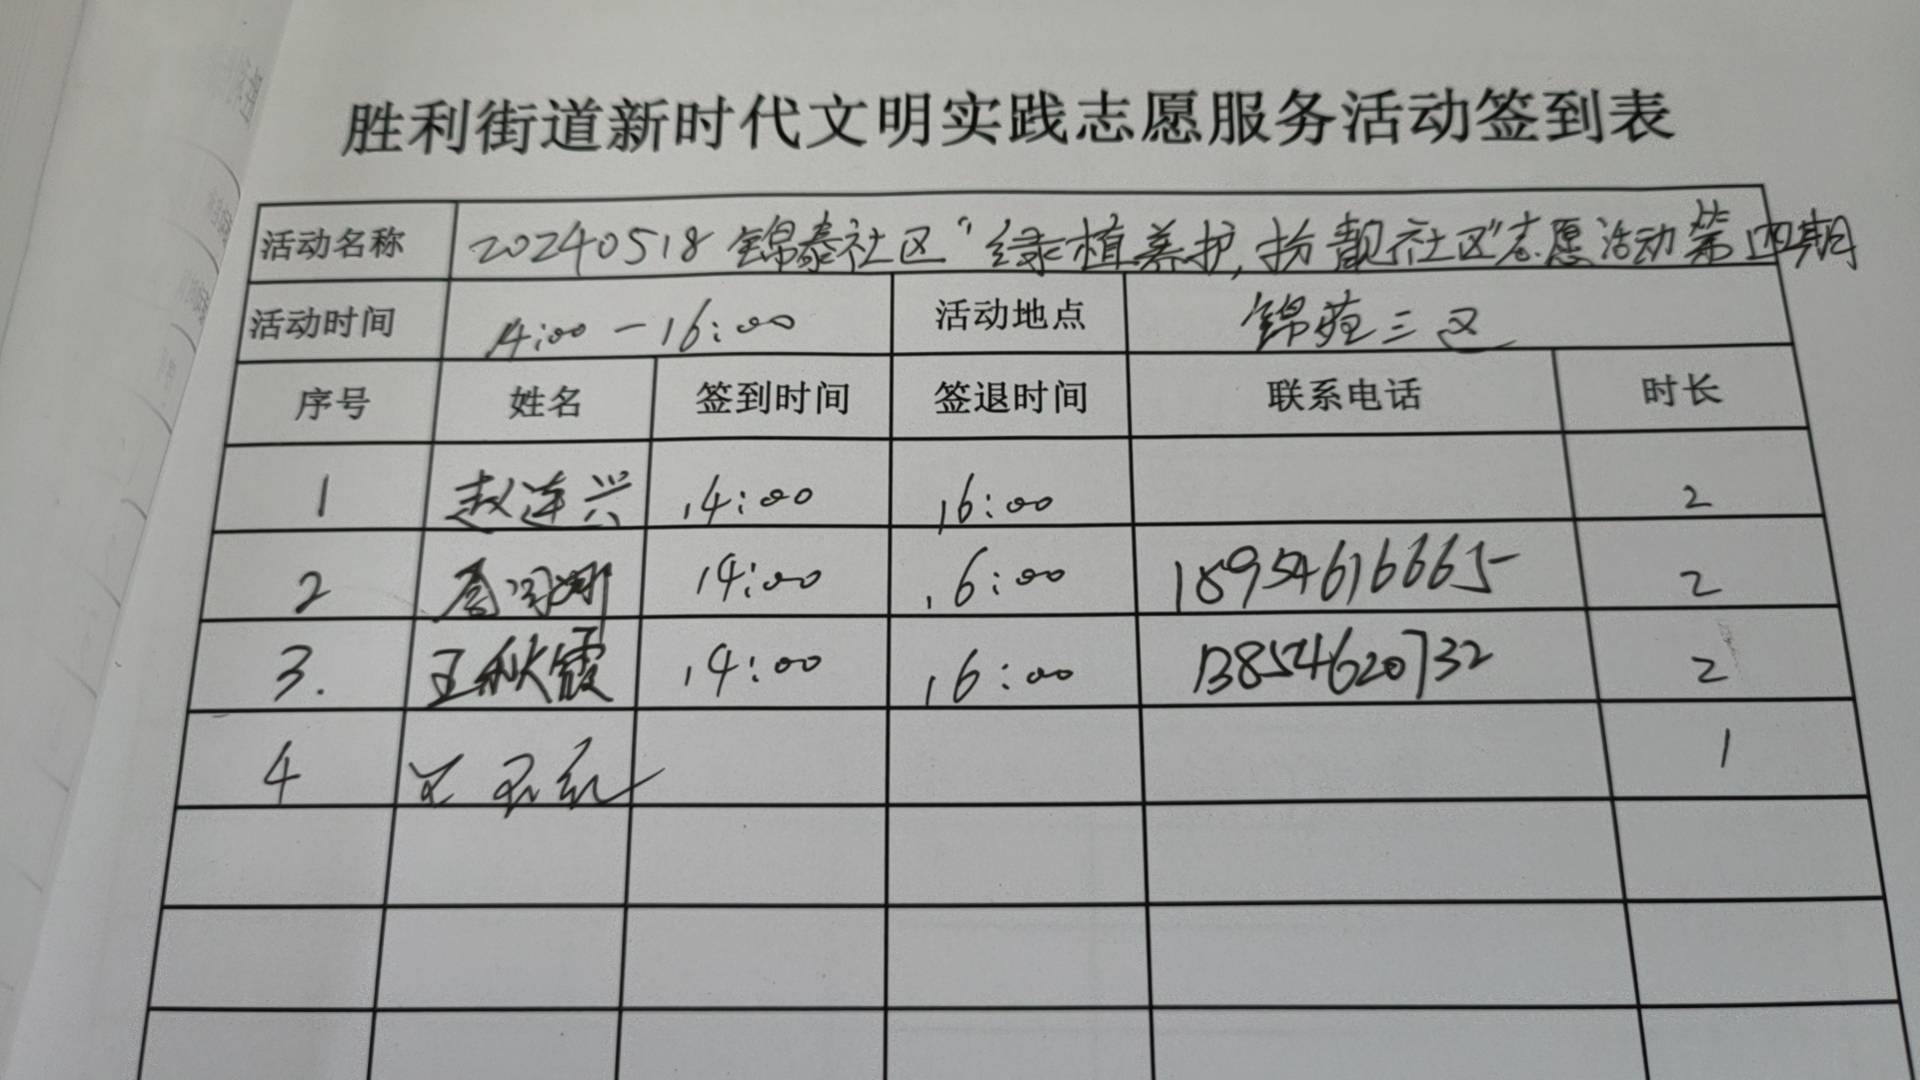 胜利街道新时代文明实践志愿服务活动签到表
活动名称 20240518 锦泰社区“绿植养护,扮靓社区”志愿活动第四期
活动时间 14:00-16:00 活动地点 锦苑三区
序号 姓名 签到时间 签退时间 联系电话 时长
1 赵连兴 14:00 16:00 2
2 14:00 16:00 18954616665 2
3. 王秋霞 14:00 16:00 13854620732 2
4 1